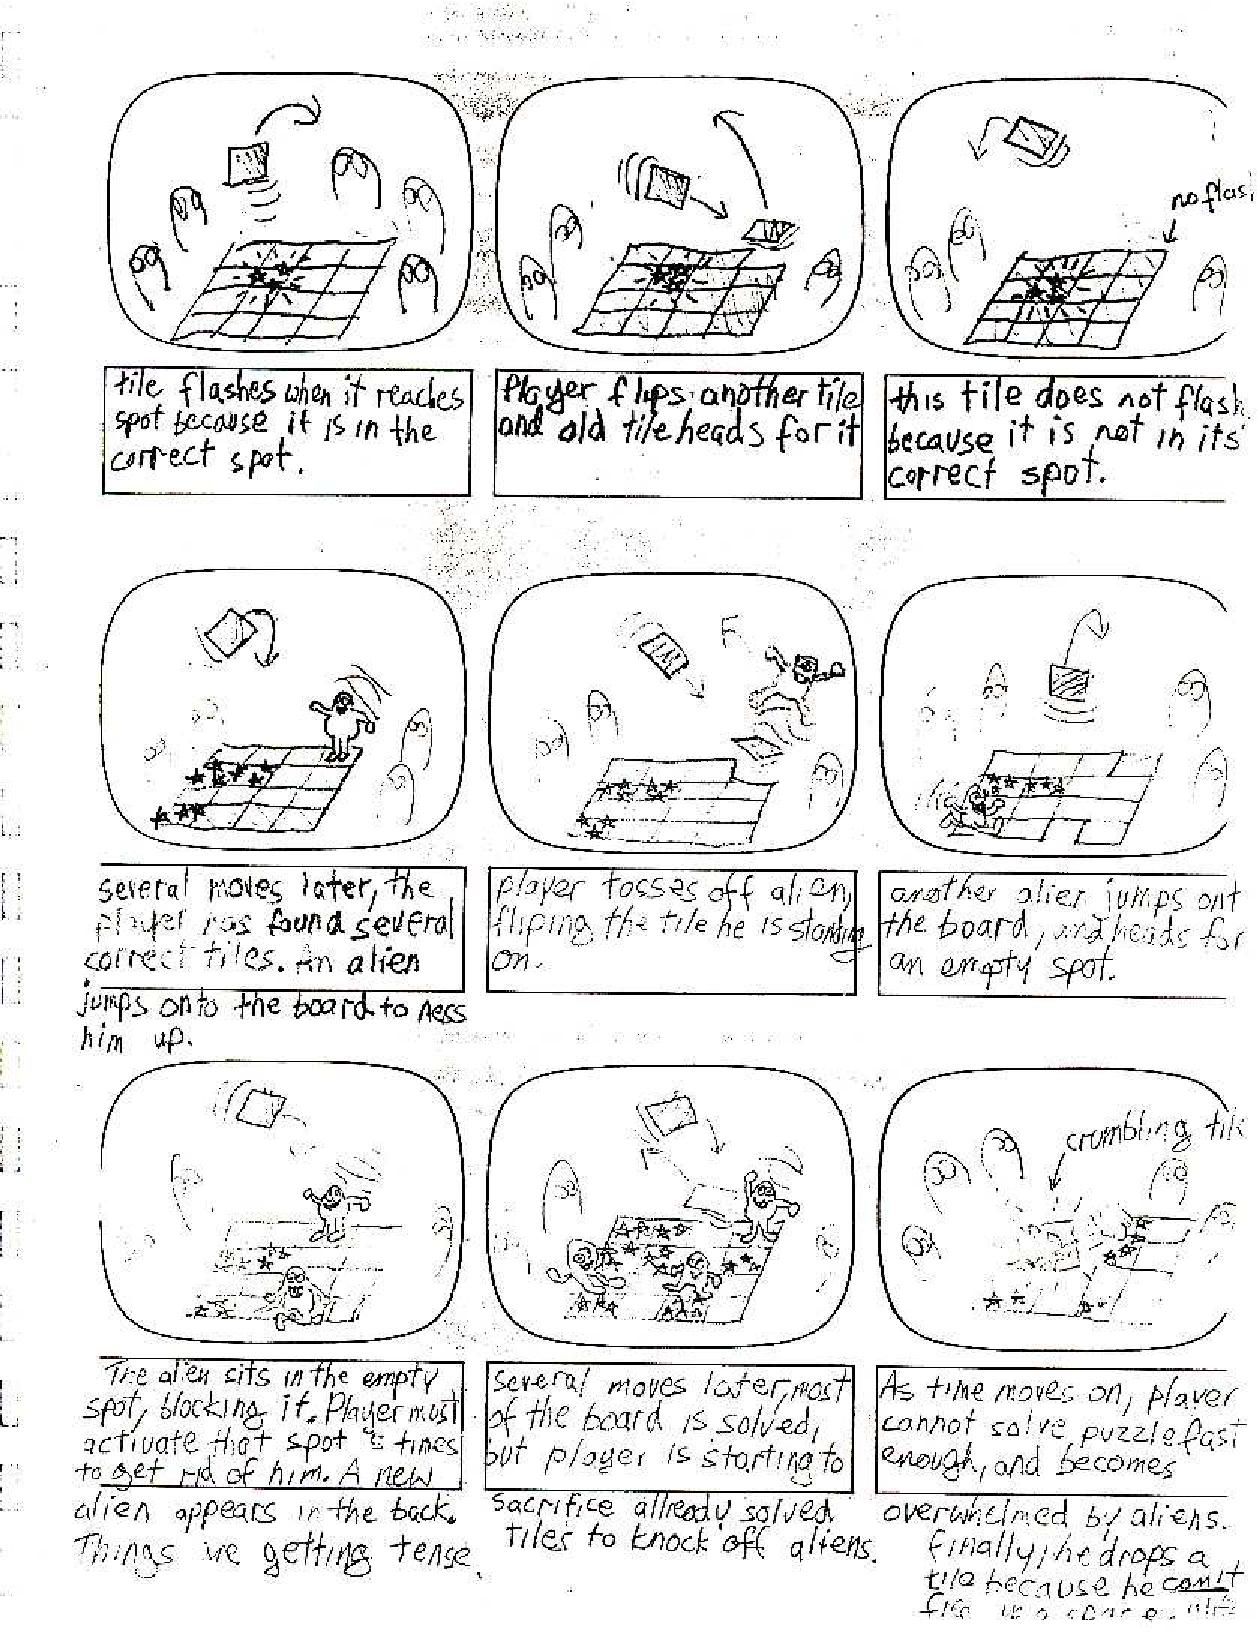 tile flashes when it reaches
spot because it is in the
correct spot.
Player flips another tile
and old tile heads for it
no flas
this tile does not flash
because it is not in its
correct spot.
several moves later, the
player has found several
correct tiles. An alien
jumps onto the board to mess
him up.
player tosses off alien,
fliping the tile he is standing
on.
another alien jumps ont
the board, and heads for
an empty spot.
The alien sits in the empty
spot, blocking it. Player must
activate that spot times
to get rid of him. A new
alien appears in the back.
Things are getting tense.
several moves later, most
of the board is solved,
but player is starting to
sacrifice allready solved
tiles to knock off aliens.
crumbling tile
As time moves on, player
cannot solve puzzle fast
enough, and becomes
overwhelmed by aliens.
Finally, he drops a
tile because he can't